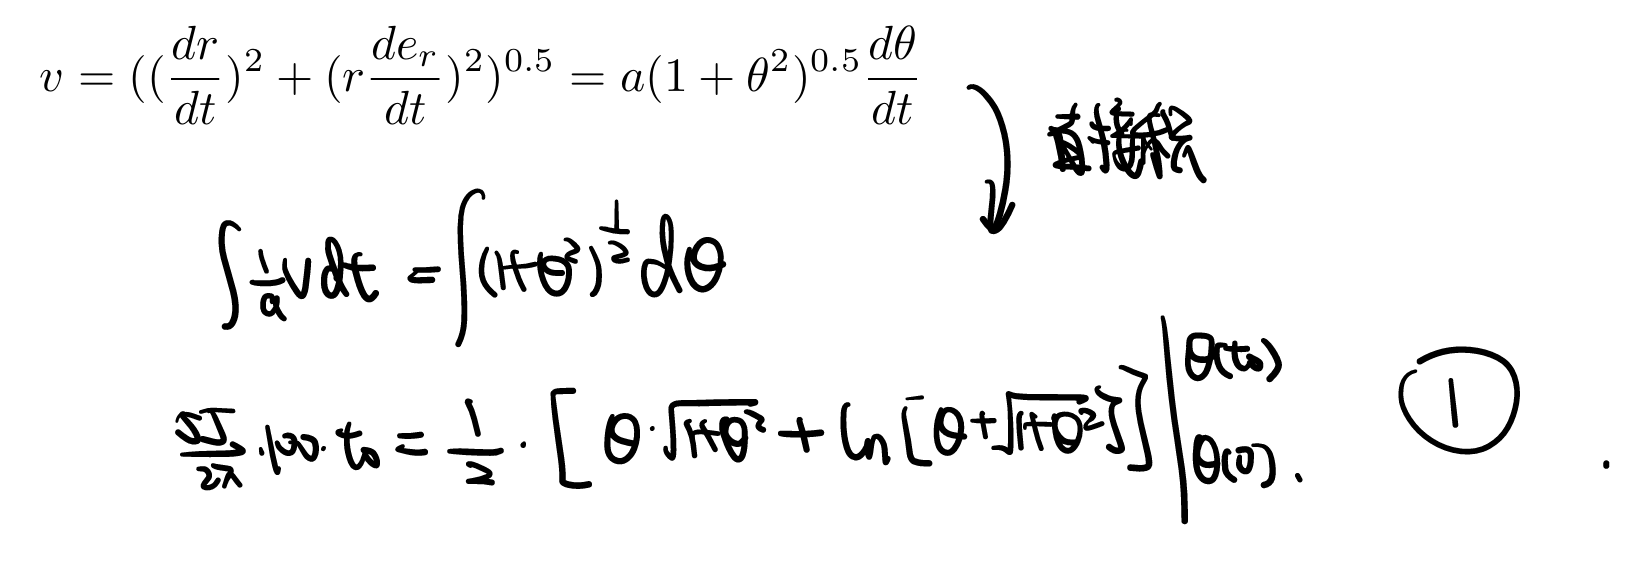 v = ((dr/dt)^2 + (r de_r/dt)^2)^0.5 = a(1 + θ^2)^0.5 dθ/dt
直接积
∫ 1/a v dt = ∫ (1+θ^2)^1/2 dθ
/2π · 100 · t₀ = 1/2 · [ θ · √(1+θ^2) + ln [θ + √(1+θ^2)] ] | θ(t₀) θ(0) .
①